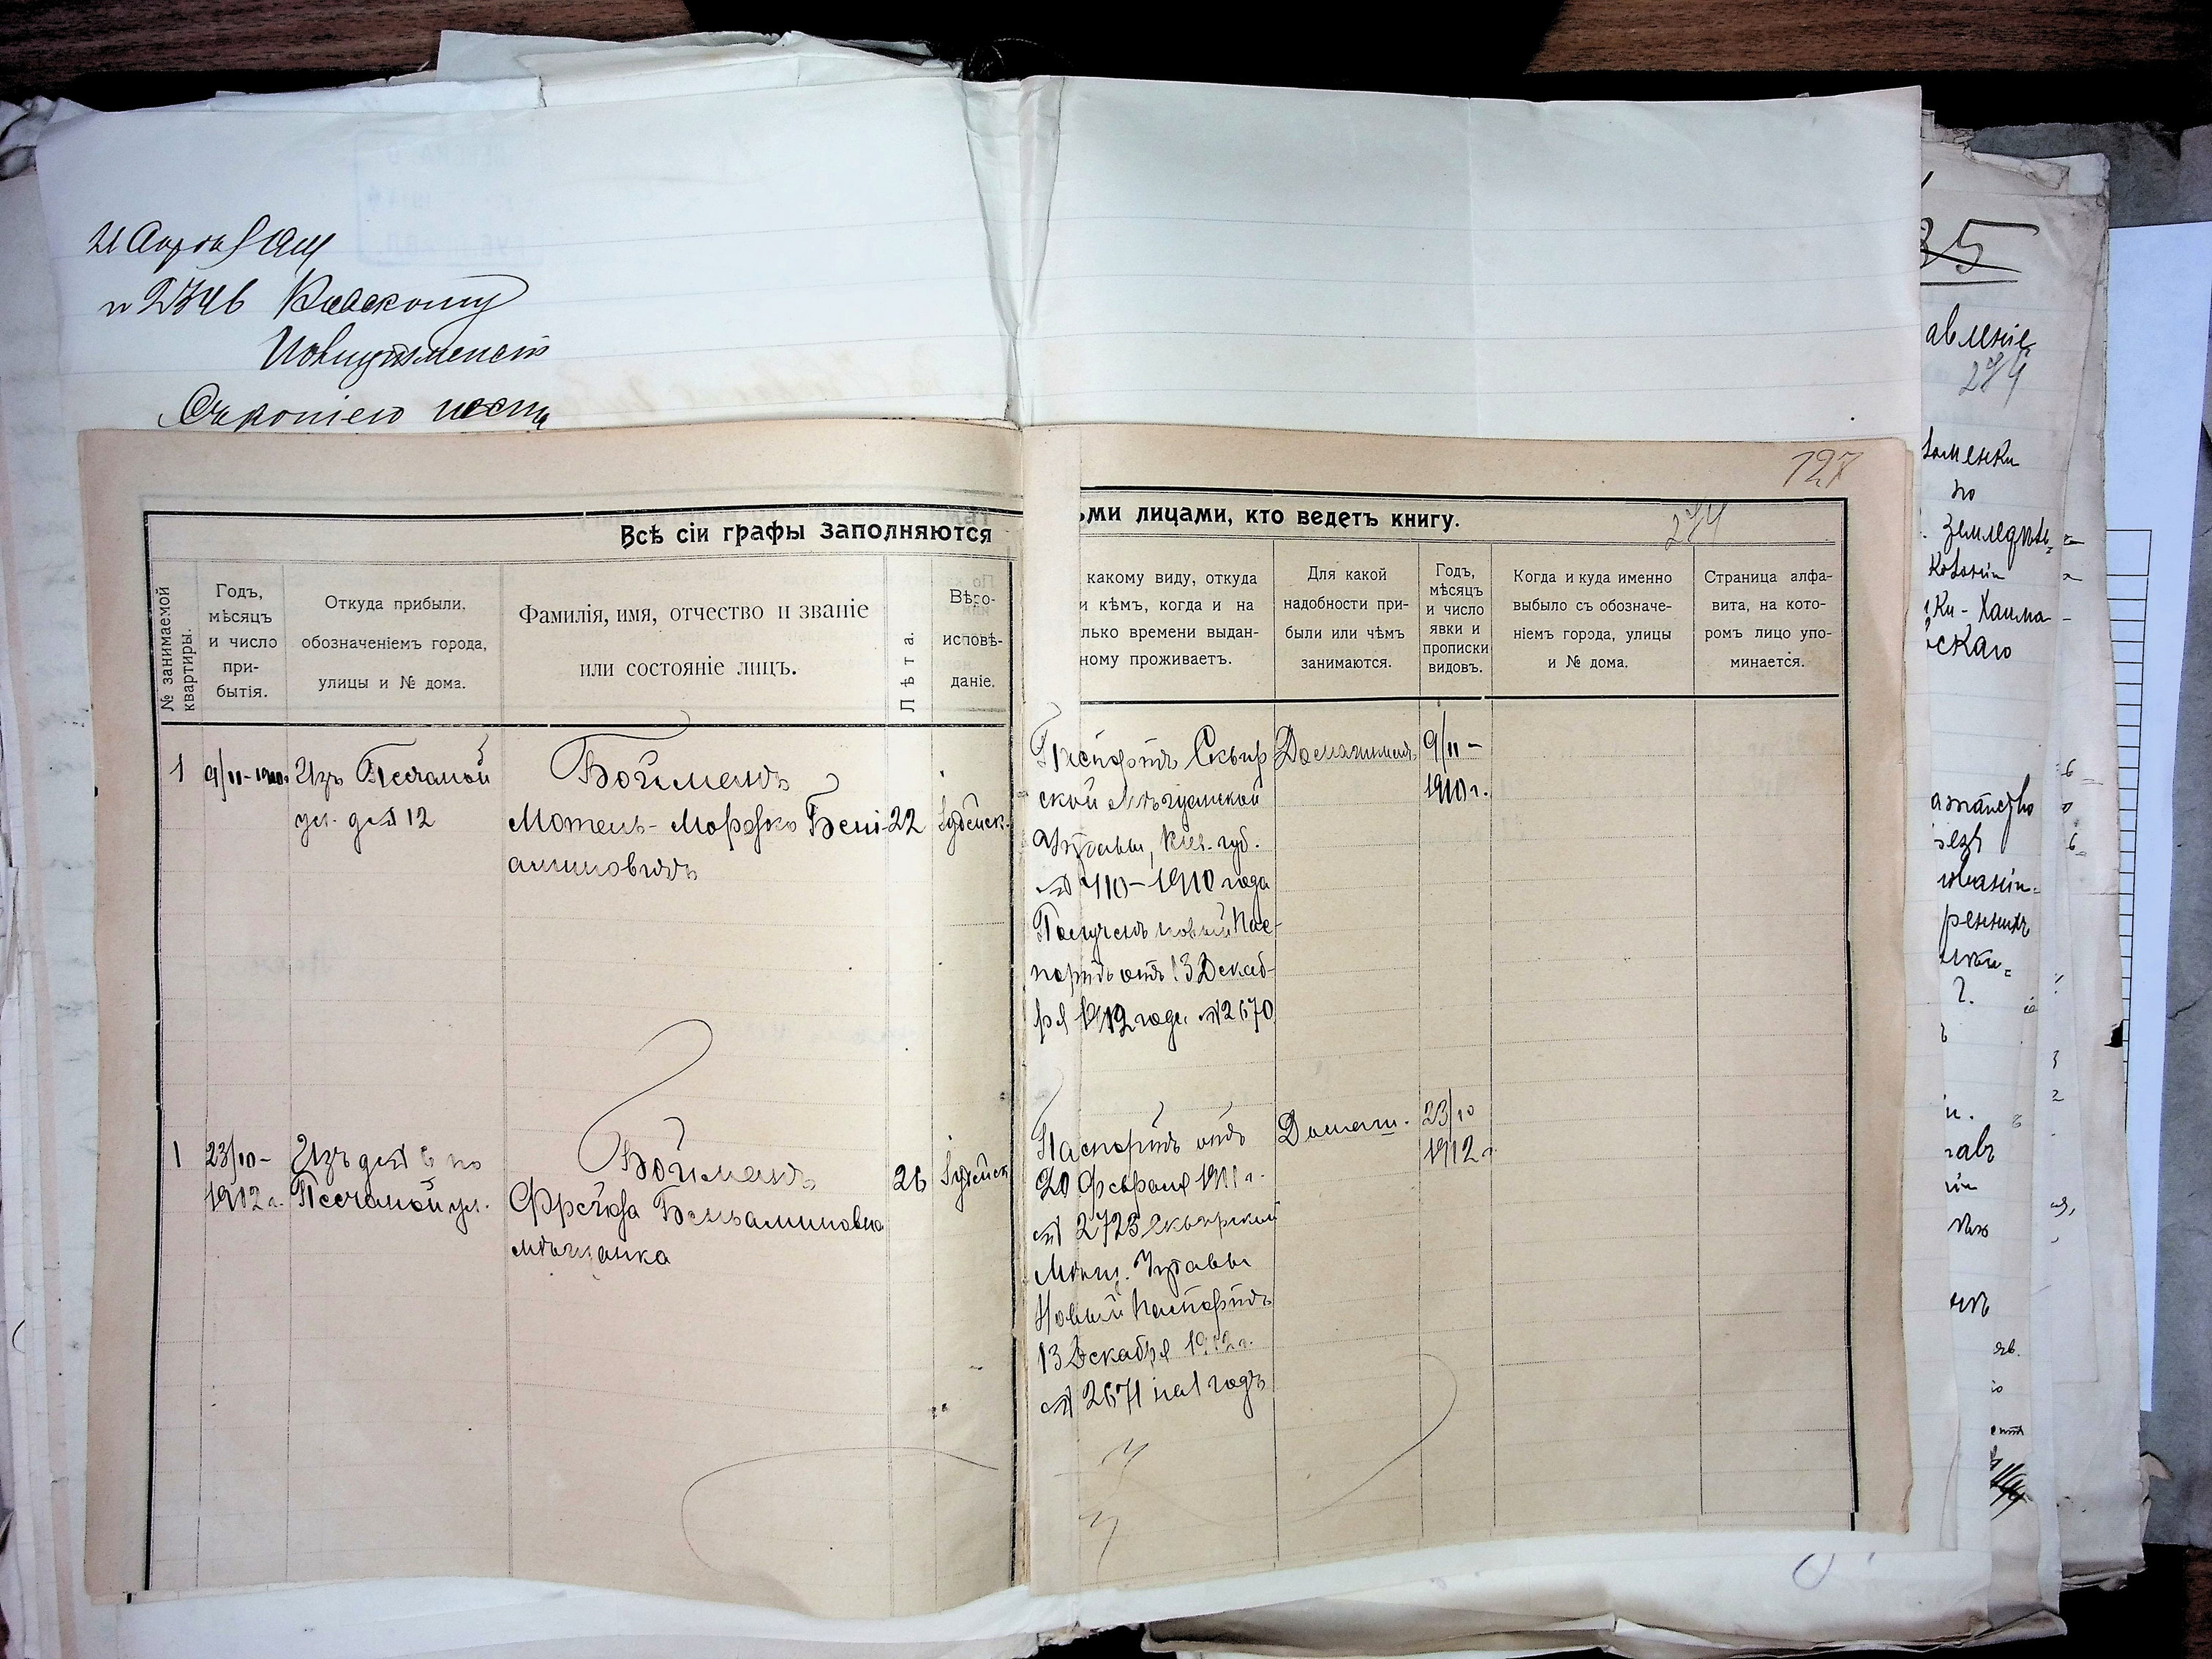 21 Апрѣля
№ 2746 Кіевскому
127
274
Всѣ сіи графы заполняются
ьми лицами, кто ведетъ книгу.
№ занимаемой квартиры.
Годъ,
мѣсяцъ
и число
при-
бытія.
Откуда прибыли,
обозначеніемъ города,
улицы и № дома.
Фамилія, имя, отчество и званіе
или состояніе лицъ.
Лѣта.
Вѣро-
исповѣ-
даніе.
какому виду, откуда
и кѣмъ, когда и на
лько времени выдан-
ному проживаетъ.
Для какой
надобности при-
были или чѣмъ
занимаются.
Годъ,
мѣсяцъ
и число
явки и
прописки
видовъ.
Когда и куда именно
выбыло съ обозначе-
ніемъ города, улицы
и № дома.
Страница алфа-
вита, на кото-
ромъ лицо упо-
минается.
1
9/11-1910г.
Изъ Песчаной
ул. д№ 12
Бойманъ
Мотель-Мордко Бені-
аминовичъ
22
Іудейск.
Паспортъ Сквир
ской Мѣщанской
Управы, Кіев. губ.
№ 410-1910 года
Полученъ новый Пас-
портъ отъ 13 Декаб-
ря 1912 года № 2670
Домашними
9/11-
1910 г.
1
23/10-
1912 г.
Изъ д№ 6 по
Песчаной ул.
Бойманъ
Фрейда Беньаминовна
мѣщанка
26
Іудейск
Паспортъ отъ
20 Февраля 1911 г.
№ 2723 Сквирской
Мѣщ. Управы
Новый Паспортъ
13 Декабря 1912 г.
№ 2671 на 1 годъ
Домашн.
23/10
1912 г
35
авленіе
274
по
земледѣль
Колоніи
ки-Хаима
скаго